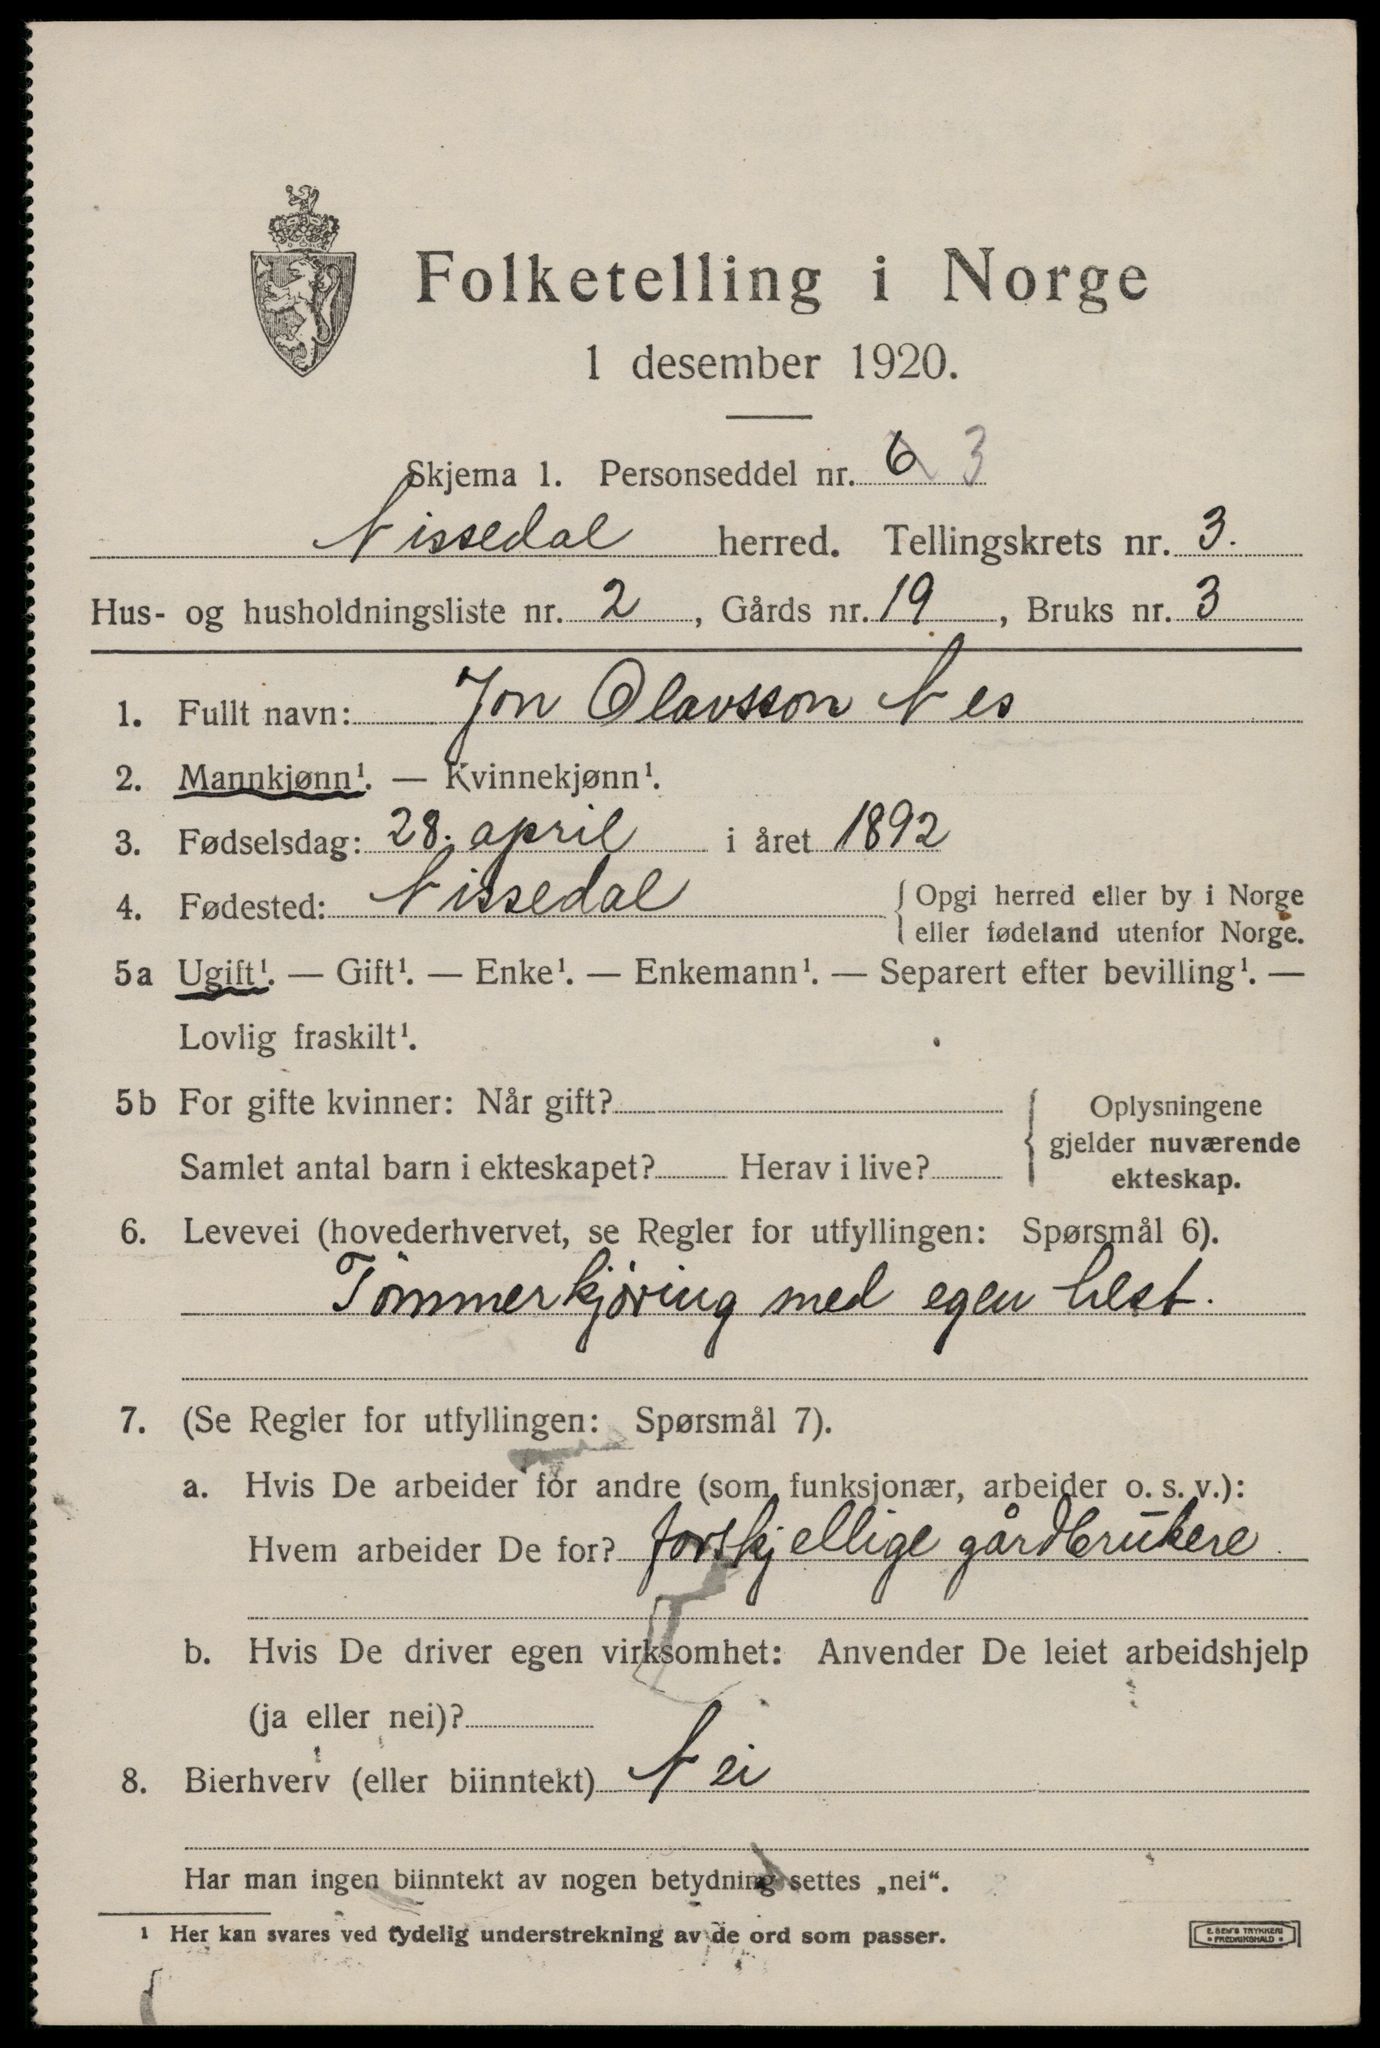 Folketelling i Norge
1 desember 1920.
Skjema 1. Personseddel nr. 6 3
Nissedal herred. Tellingskrets nr. 3.
Hus- og husholdningsliste nr. 2, Gårds nr. 19, Bruks nr. 3
1. Fullt navn: Jon Olavsson Nes
2. Mannkjønn¹. — Kvinnekjønn¹.
3. Fødselsdag: 28. april i året 1892
4. Fødested: Nissedal { Opgi herred eller by i Norge
eller fødeland utenfor Norge.
5a Ugift¹. — Gift¹. — Enke¹. — Enkemann¹. — Separert efter bevilling¹. —
Lovlig fraskilt¹.
5b For gifte kvinner: Når gift?
Samlet antal barn i ekteskapet? Herav i live?
{ Oplysningene
gjelder nuværende
ekteskap.
6. Levevei (hovederhvervet, se Regler for utfyllingen: Spørsmål 6).
Tömmerkjöring med egen hest.
7. (Se Regler for utfyllingen: Spørsmål 7).
a. Hvis De arbeider for andre (som funksjonær, arbeider o. s. v.):
Hvem arbeider De for? forskjellige gårdbrukere
b. Hvis De driver egen virksomhet: Anvender De leiet arbeidshjelp
(ja eller nei)?
8. Bierhverv (eller biinntekt) Nei
Har man ingen biinntekt av nogen betydning settes „nei“.
¹ Her kan svares ved tydelig understrekning av de ord som passer.
E. SEM'S TRYKKERI
• FREDRIKSHALD •